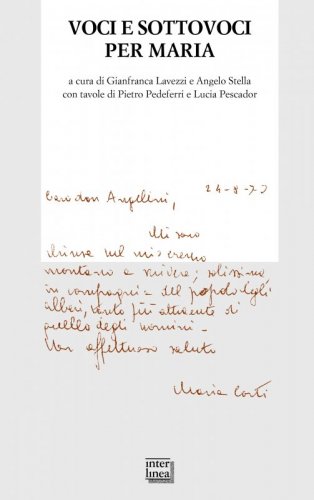 VOCI E SOTTOVOCI
PER MARIA
a cura di Gianfranca Lavezzi e Angelo Stella
con tavole di Pietro Pedeferri e Lucia Pescador
24-8-73
Caro don Angelini,
Mi sono
chiusa nel mio eremo
montano a scrivere; solissima
in compagnia del popolo degli
alberi, tanto più attraente di
quello degli uomini.
Un affettuoso saluto
Maria Corti
inter
linea